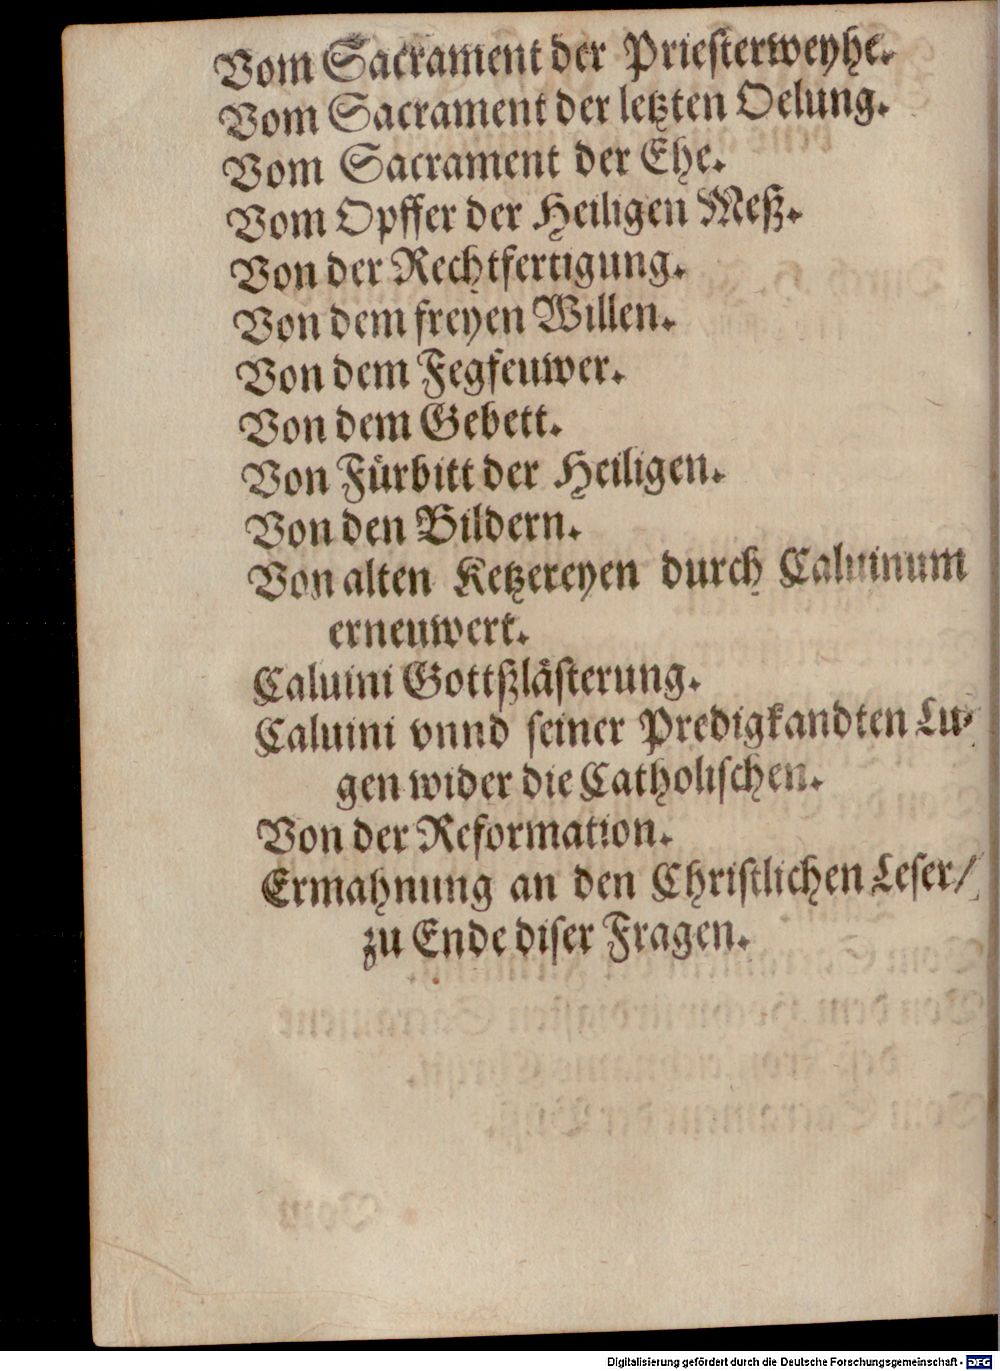 Vom Sacrament der Priesterweyhe.
Vom Sacrament der letzten Oelung.
Vom Sacrament der Ehe.
Vom Opffer der Heiligen Meß.
Von der Rechtfertigung.
Von dem freyen Willen.
Von dem Fegfeuwer.
Von dem Gebett.
Von Fürbitt der Heiligen.
Von den Bildern.
Von alten Ketzereyen durch Caluinum
erneuwert.
Caluini Gottßlästerung.
Caluini vnnd seiner Predigkandten Lu-
gen wider die Catholischen.
Von der Reformation.
Ermahnung an den Christlichen Leser/
zu Ende diser Fragen.
Digitalisierung gefördert durch die Deutsche Forschungsgemeinschaft - DFG